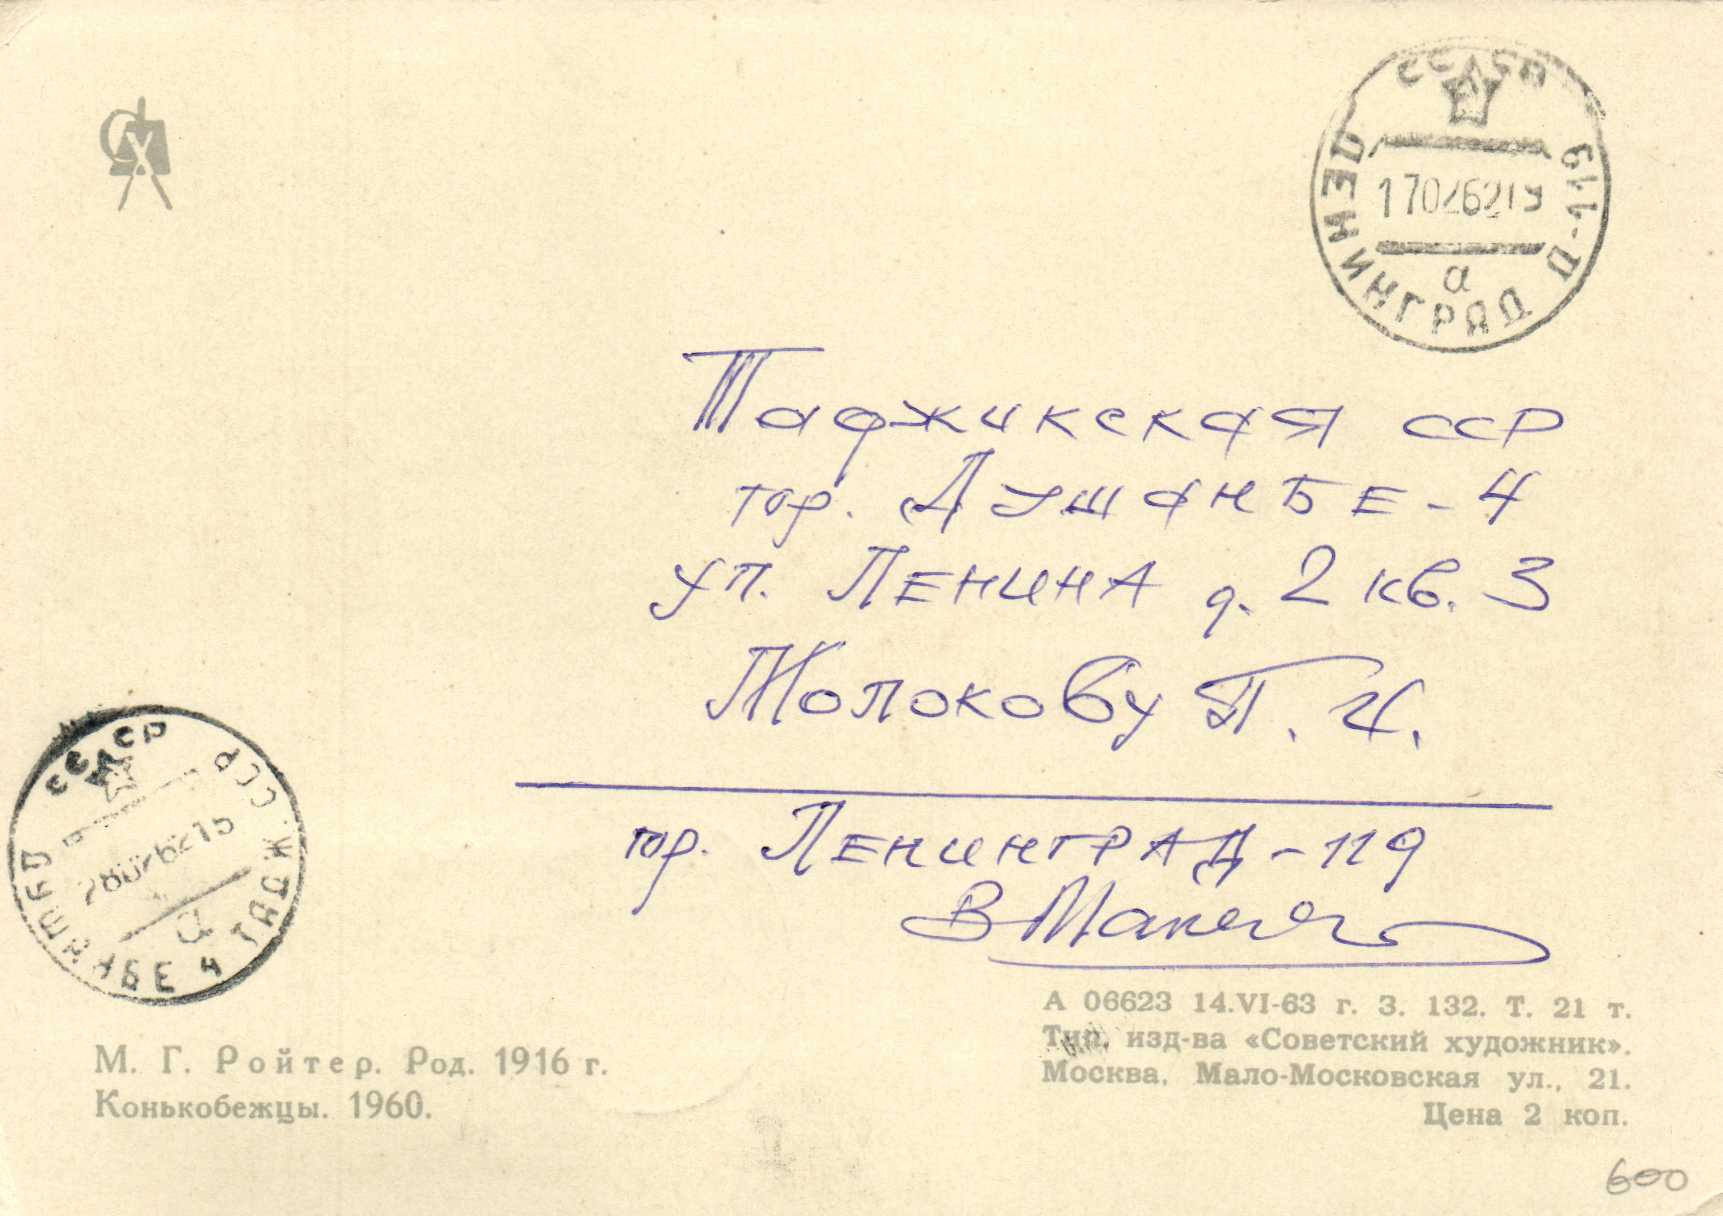 СССР
ЛЕНИНГРАД Д-119
а
Таджикская ССР
гор. Душанбе-4
ул. Ленина д. 2 кв. 3
Молокову П. И.
гор. Ленинград-119
СССР
ДУШАНБЕ 4 ТАДЖ. ССР
а
М. Г. Ройтер. Род. 1916 г.
Конькобежцы. 1960.
А 06623 14.VI-63 г. З. 132. Т. 21 т.
Тип. изд-ва «Советский художник».
Москва, Мало-Московская ул., 21.
Цена 2 коп.
600